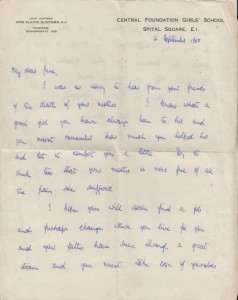 HEAD MISTRESS
MISS ELAINE
TELEPHONE
BISHOPSGATE
CENTRAL FOUNDATION GIRLS' SCHOOL
SPITAL SQUARE, E.1.
September
My dear
I was so sorry to hear from your friends
of the death of your mother. I know what a
good girl you have always been to her and
you must remember how much you helped her
and let it comfort you a little. Try to
think too that your mother is now free of all
the pain she suffered.
I hope you will soon find a job
and perhaps change where you live for you
and your father have been through a great
strain and you must take care of yourselves